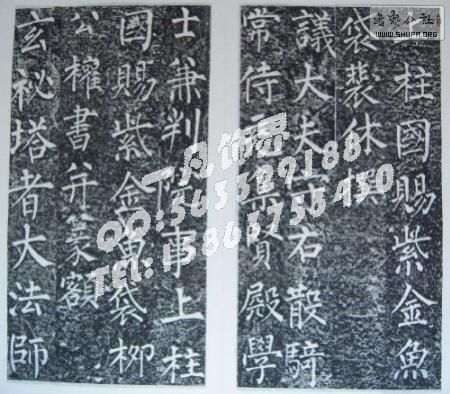 柱國賜紫金魚
袋裴休撰
議大夫守右散騎
常侍充集賢殿學
士兼判院事上柱
國賜紫金魚袋柳
公權書并篆額
玄祕塔者大法師
一凡饰界
QQ:
TEL: